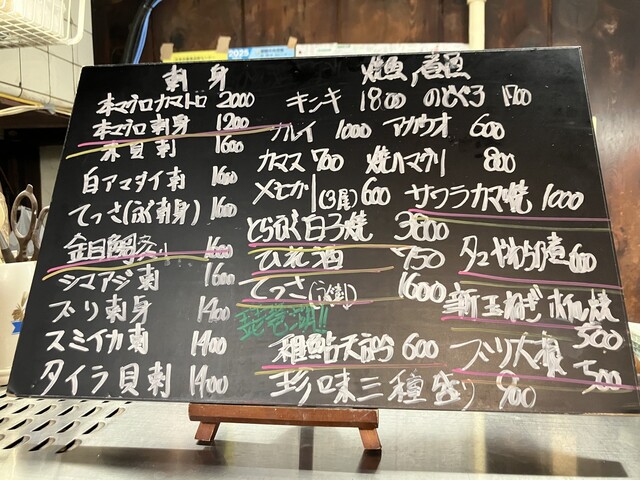 刺身
本マグロカマトロ 2000
本マグロ刺身 1200
赤貝刺 1600
白アマダイ刺 1600
てっさ(ふぐ刺身) 1600
金目鯛炙り 1600
シマアジ刺 1600
ブリ刺身 1400
スミイカ刺 1400
タイラ貝刺 1400
焼魚,煮魚
キンキ 1800 のどぐろ 1700
カレイ 1000 アカウオ 600
カマス 700 焼ハマグリ 800
メヒカリ(3尾) 600 サワラカマ焼 1000
とらふぐ白子焼 3800
ひれ酒 750 タコやわらか煮 600
てっさ(ふぐ刺) 1600 新玉ねぎホイル焼 500
琵琶湖!!
稚鮎天ぷら 600 ブリ大根 500
珍味三種盛り 900